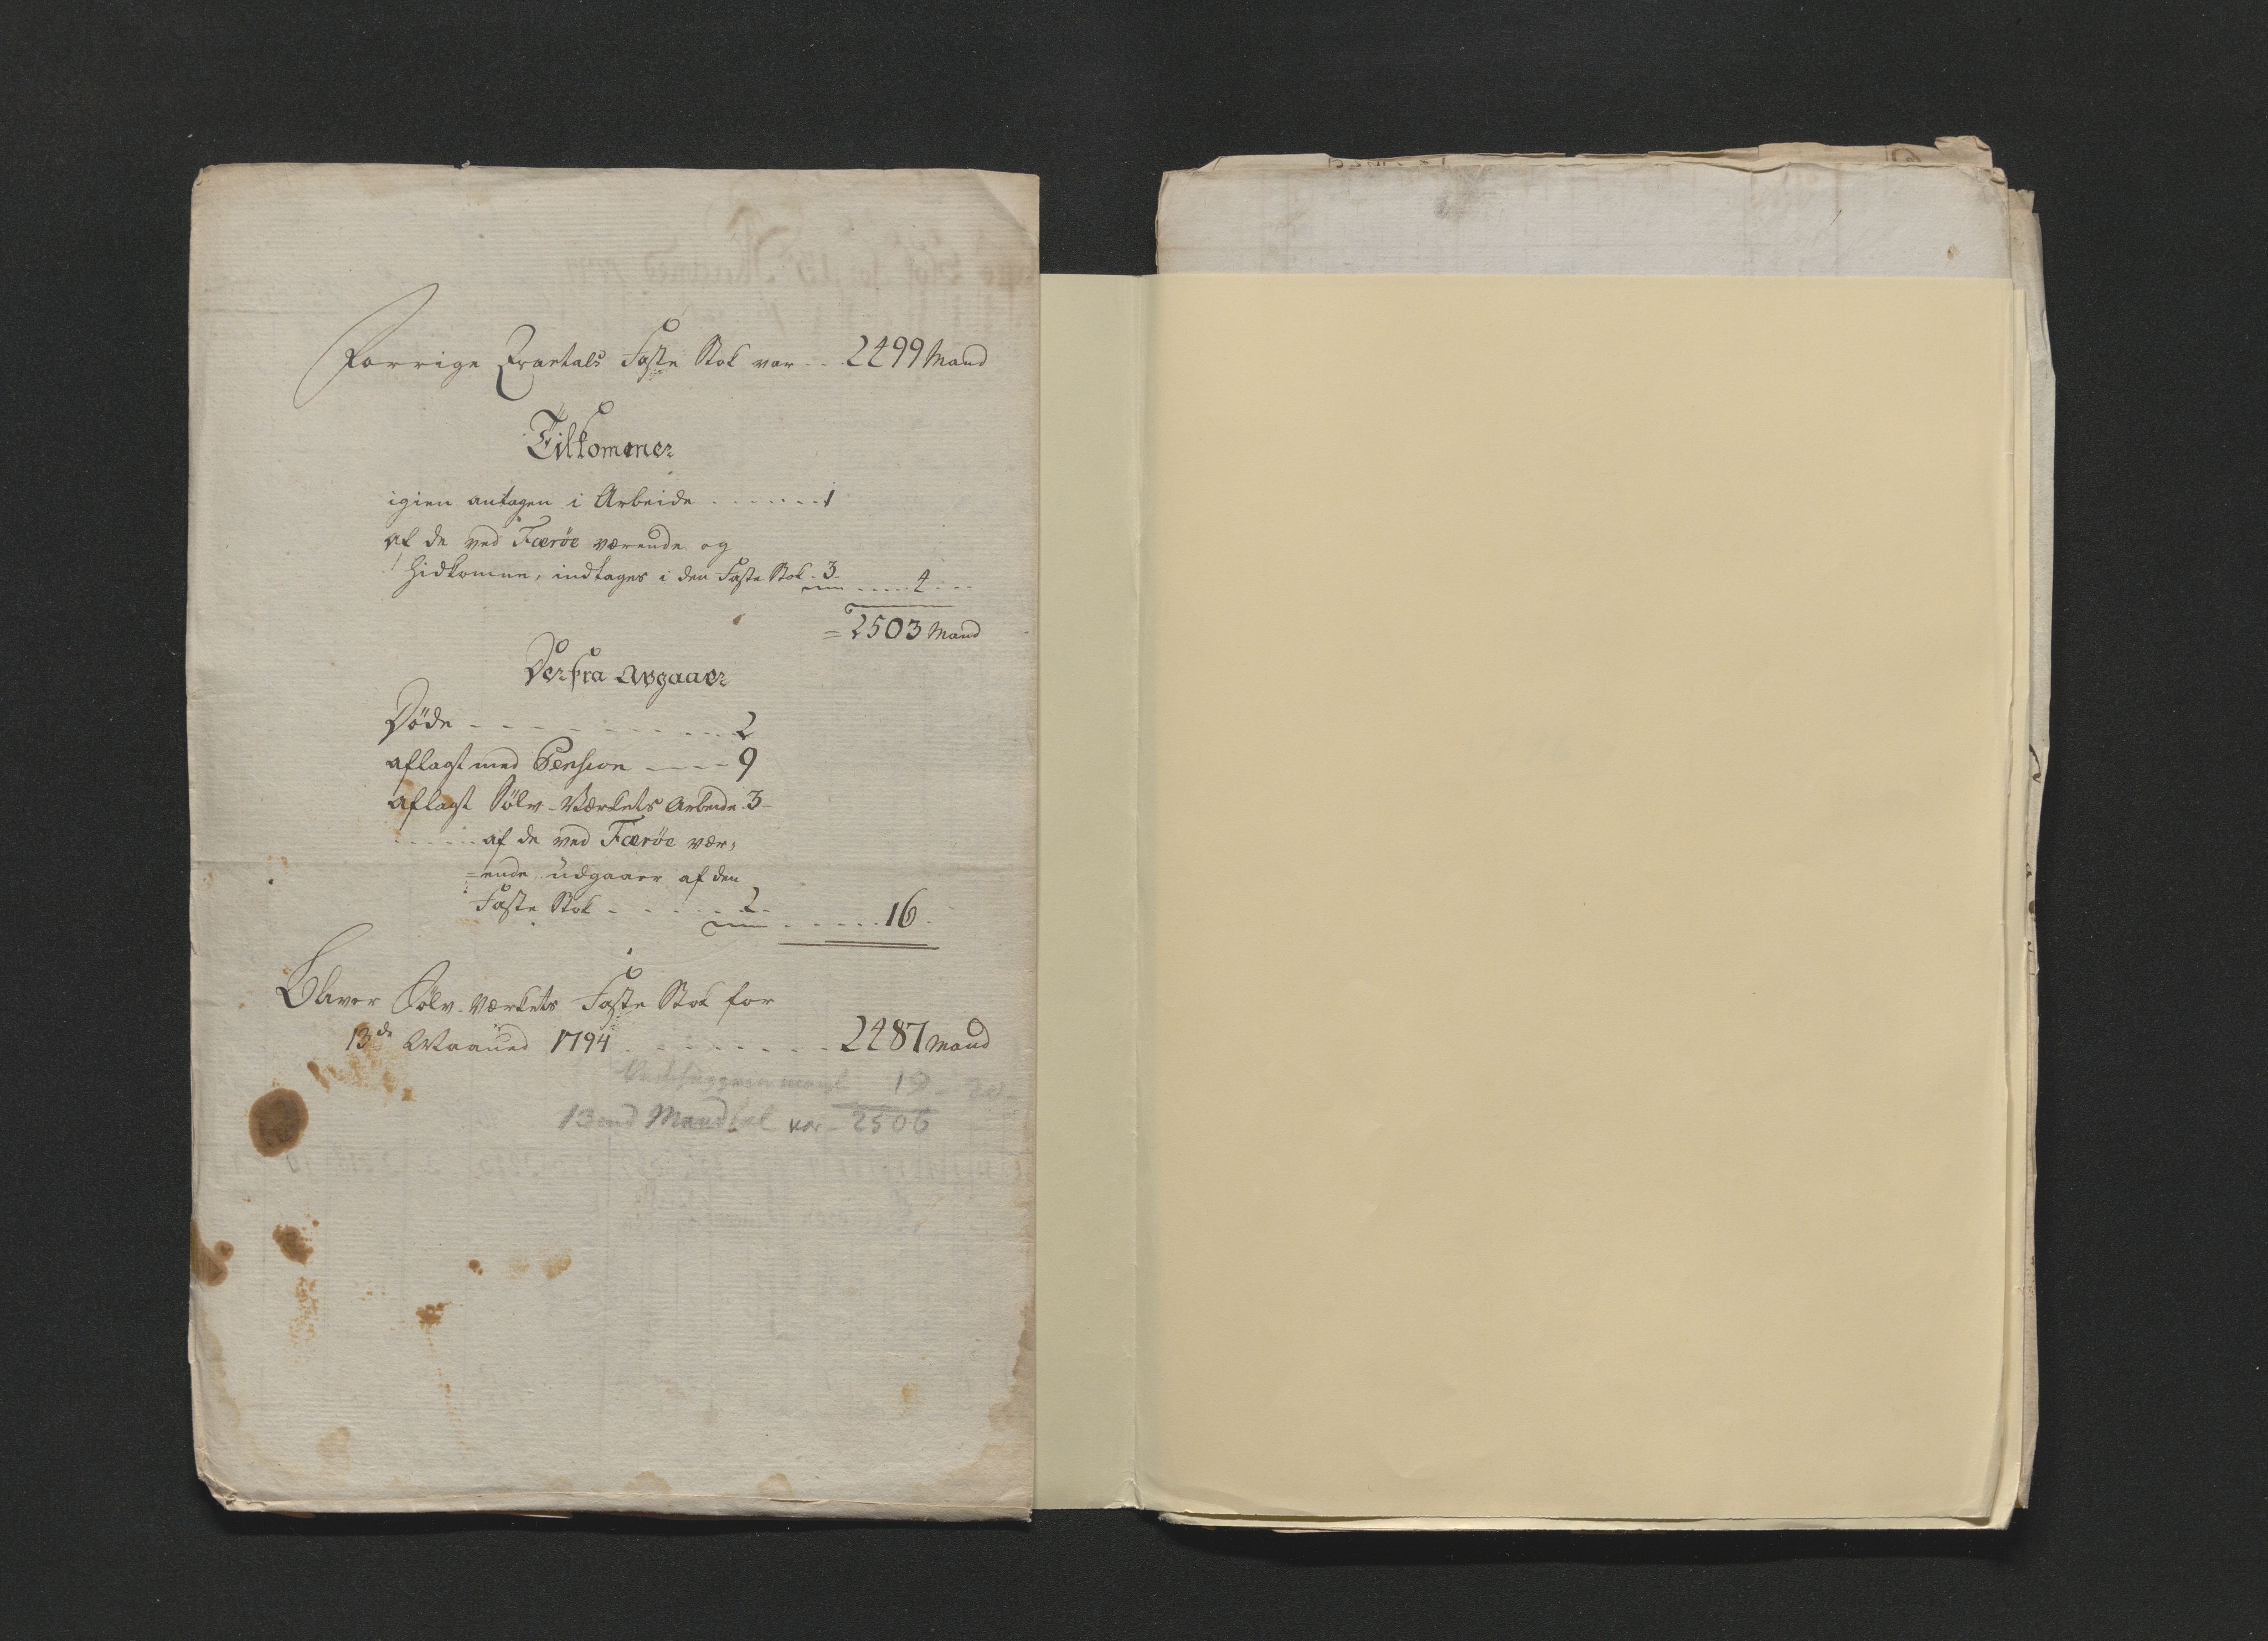 Forrige Qvartals Faste Stok var - - 2499 Mand
Tilkommer
igien antagen i Arbeide - - - - - - - 1
af de ved Færöe værende og
hidkomne, indtages i den Faste Stok - 3 -
- - - - - 4 - - -
= 2503 Mand
Derfra Avgaaer
Döde - - - - - - - - - - 2
aflagt med Pension - - - - 9
aflagt Sölv-Værkets Arbeide - 3 -
- - - - - - af de ved Færöe vær=
=ende udgaaer af den
Faste Stok - - - - - 2 -
- - - - - 16 -
Bliver Sölv-Værkets Faste Stok for
13de Maaned 1794 - - - - - - - - 2487 Mand
19 - 20 -
13end Mandtal var - 2506